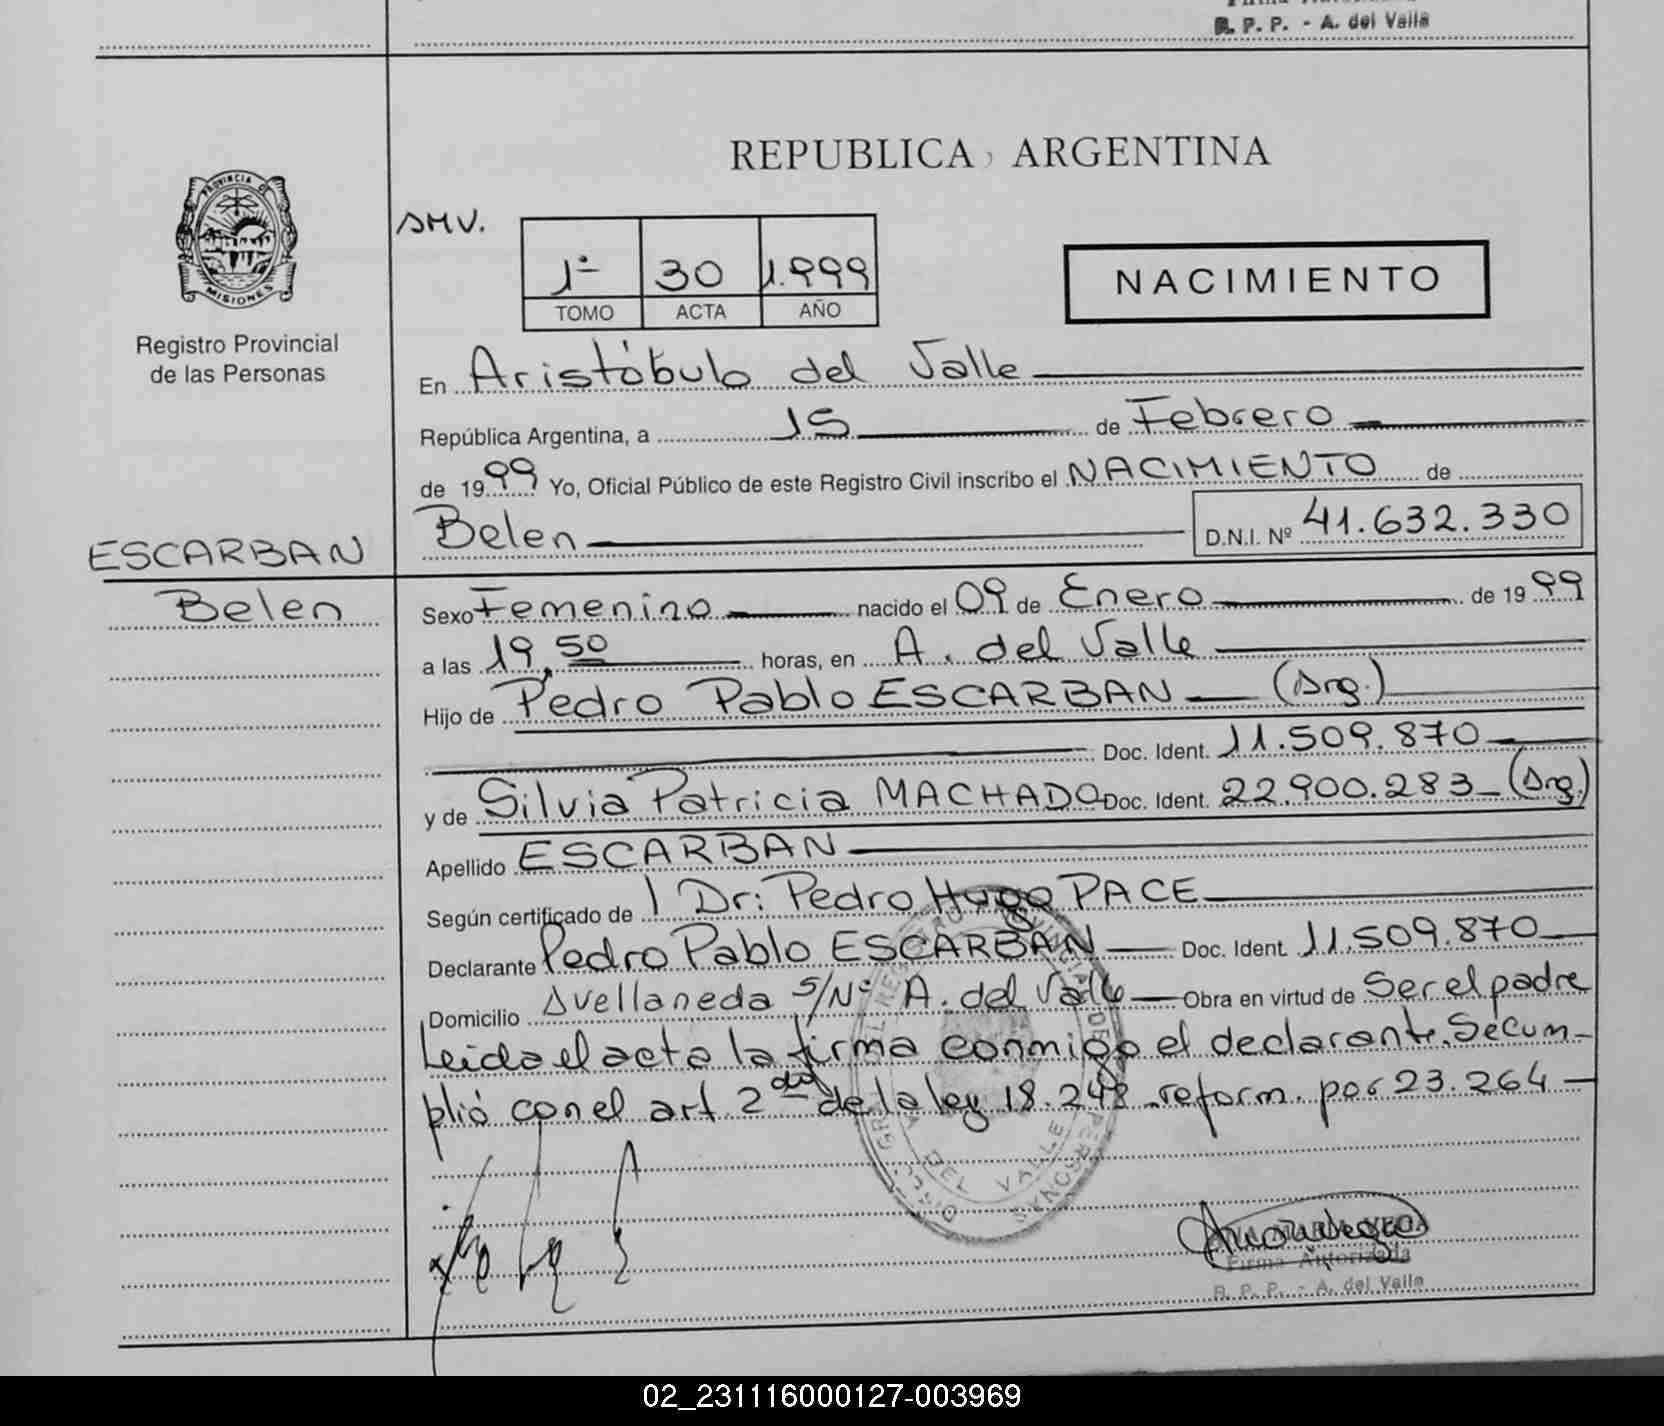 R. P. P. - A. del Valle
REPUBLICA ARGENTINA
PROVINCIA DE
MISIONES
Registro Provincial
de las Personas
SMV.
1º 30 1.999
TOMO ACTA AÑO
NACIMIENTO
En Aristóbulo del Valle
República Argentina, a 15 de Febrero
de 1999 Yo, Oficial Público de este Registro Civil inscribo el NACIMIENTO de
Belen D.N.I. Nº 41.632.330
ESCARBAN
Belen
Sexo Femenino nacido el 09 de Enero de 1999
a las 19,50 horas, en A. del Valle
Hijo de Pedro Pablo ESCARBAN (Arg.)
Doc. Ident. 11.509.870
y de Silvia Patricia MACHADO Doc. Ident. 22.900.283 (Arg.)
Apellido ESCARBAN
Según certificado de Dr: Pedro Hugo PACE
Declarante Pedro Pablo ESCARBAN Doc. Ident. 11.509.870
Domicilio Avellaneda S/Nº A. del Valle Obra en virtud de Ser el padre
Leida el acta la firma conmigo el declarante. Se cum-
plió con el art 2do de la ley 18.248 reform. por 23.264
DEL VALLE
Firma Autorizada
R. P. P. - A. del Valle
02_231116000127-003969